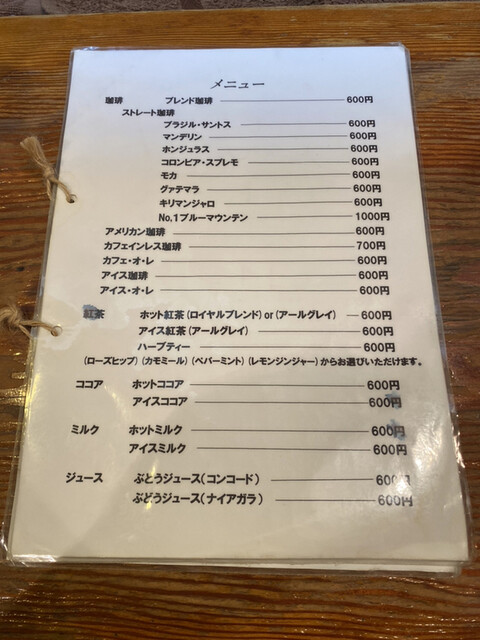 メニュー
珈琲 ブレンド珈琲 600円
ストレート珈琲
ブラジル・サントス 600円
マンデリン 600円
ホンジュラス 600円
コロンビア・スプレモ 600円
モカ 600円
グァテマラ 600円
キリマンジャロ 600円
No,1ブルーマウンテン 1000円
アメリカン珈琲 600円
カフェインレス珈琲 700円
カフェ・オ・レ 600円
アイス珈琲 600円
アイス・オ・レ 600円
紅茶 ホット紅茶(ロイヤルブレンド) or (アールグレイ) 600円
アイス紅茶(アールグレイ) 600円
ハーブティー 600円
(ローズヒップ) (カモミール) (ペパーミント) (レモンジンジャー) からお選びいただけます。
ココア ホットココア 600円
アイスココア 600円
ミルク ホットミルク 600円
アイスミルク 600円
ジュース ぶどうジュース(コンコード) 600円
ぶどうジュース(ナイアガラ) 600円